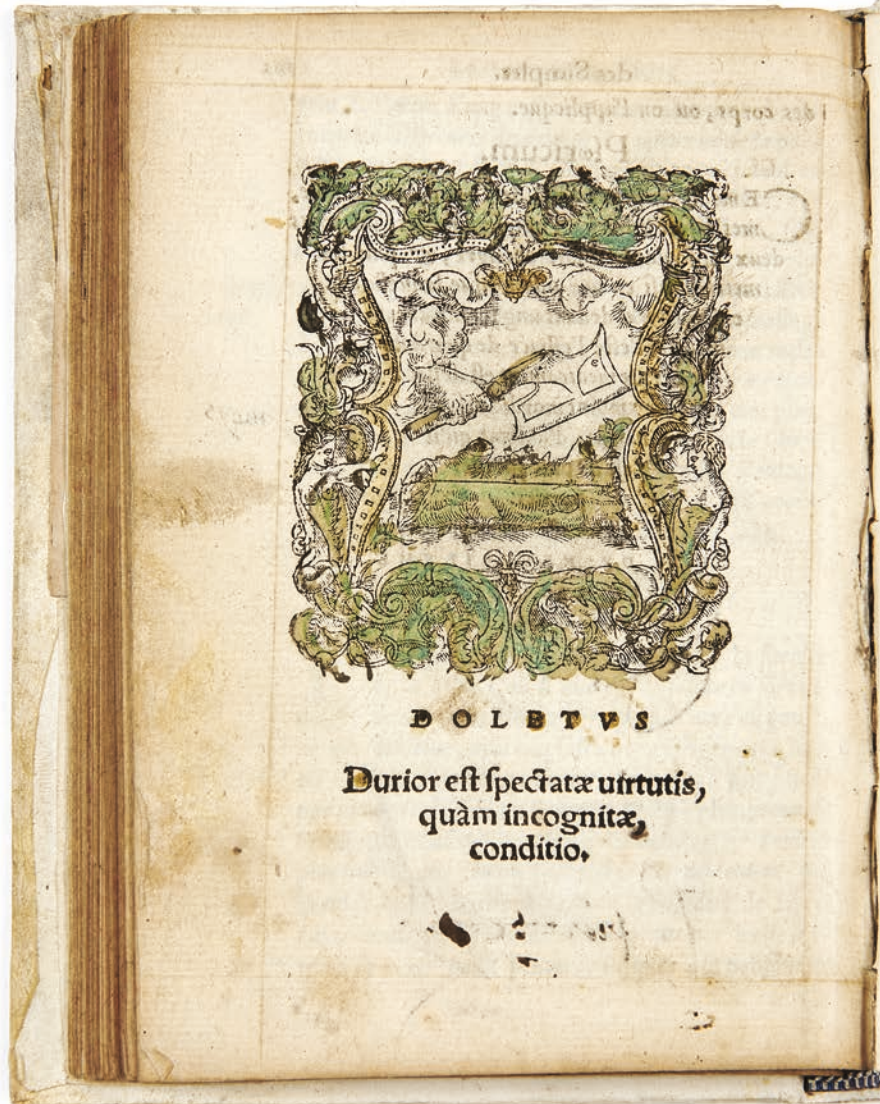 DOLETVS
Durior eſt ſpectatæ uirtutis,
quàm incognitæ,
conditio.